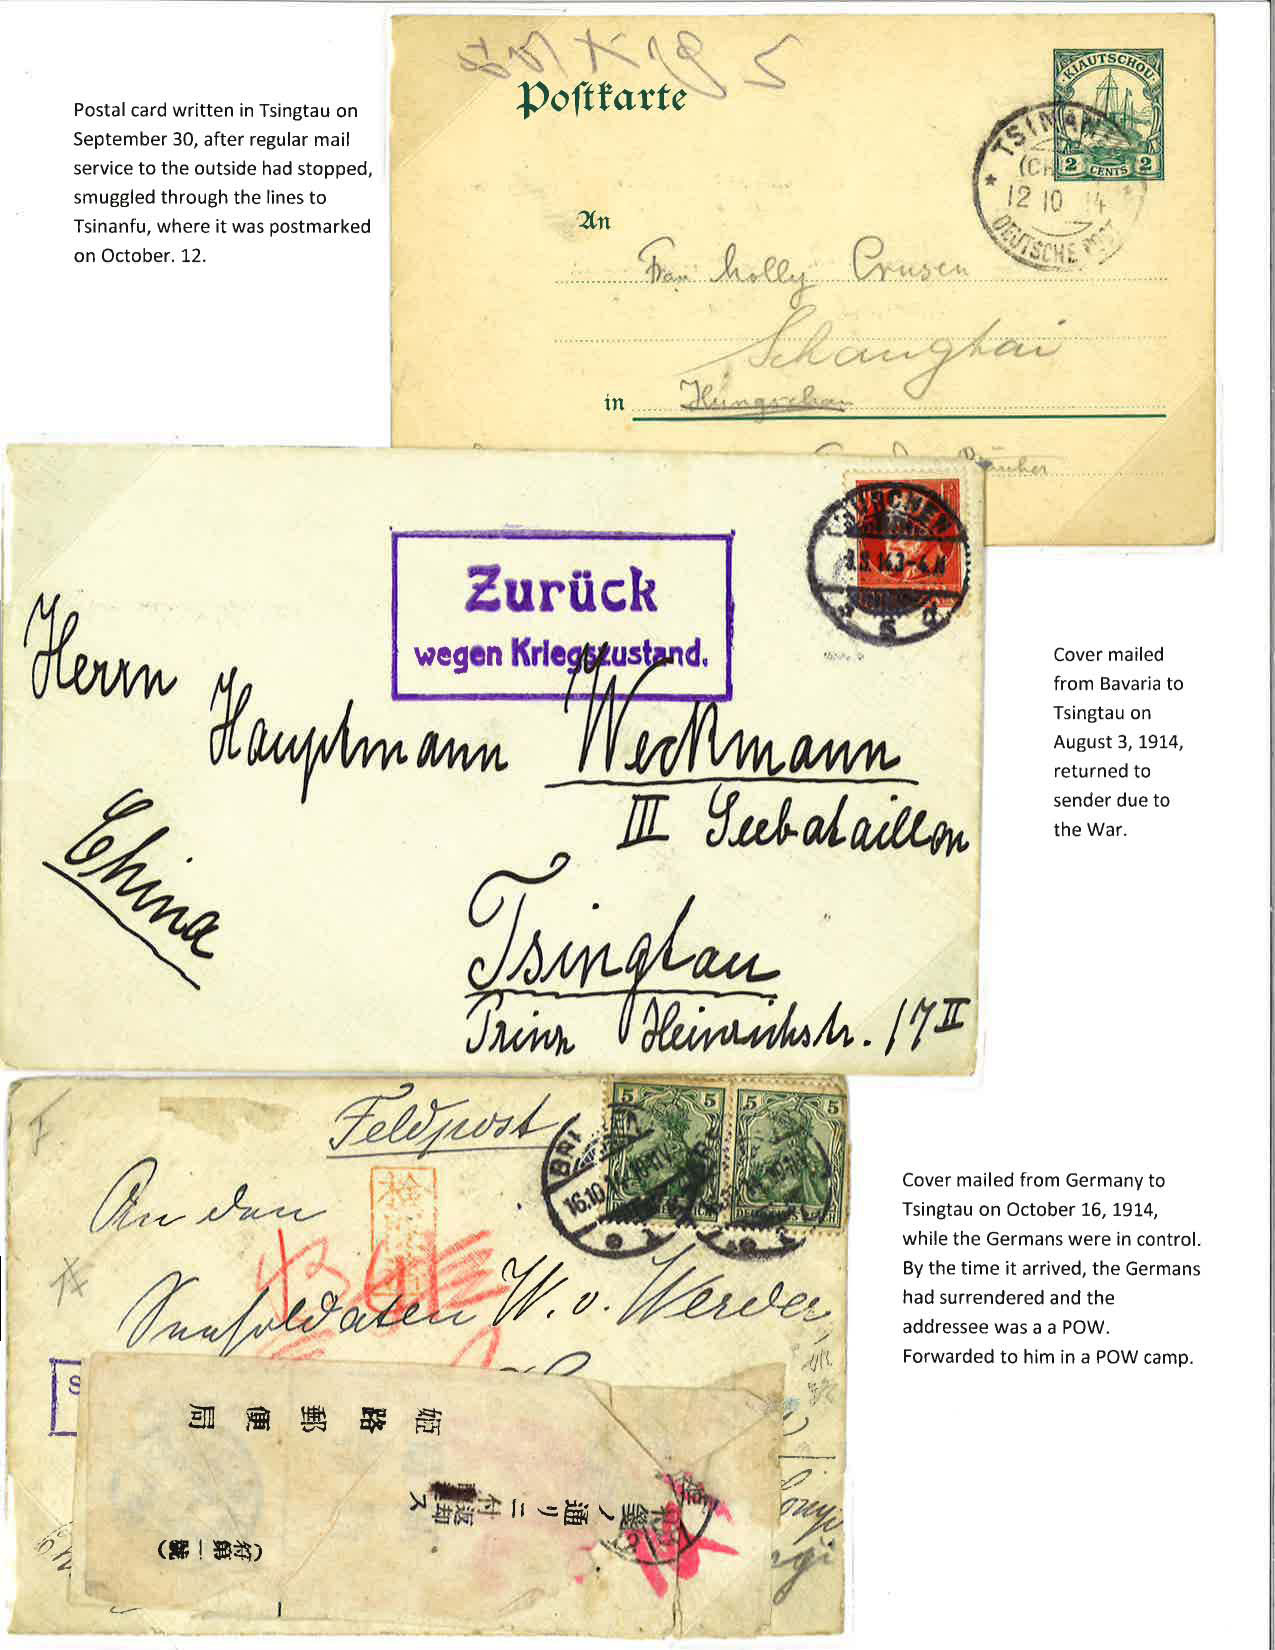 Postal card written in Tsingtau on
September 30, after regular mail
service to the outside had stopped,
smuggled through the lines to
Tsinanfu, where it was postmarked
on October. 12.
Postkarte
KIAUTSCHOU
2 CENTS 2
TSINAN
12 10 14
DEUTSCHE POST
An
Frau Molly Crusen
Schanghai
in
Zurück
wegen Kriegszustand.
MÜNCHEN
Herrn
Hauptmann Weckmann
III Seebataillon
China
Tsingtau
Prinz Heinrichstr. 17 II
Cover mailed
from Bavaria to
Tsingtau on
August 3, 1914,
returned to
sender due to
the War.
Feldpost
5 5 5 5
16.10
An den
Seesoldaten W. v. Werder,
姫路郵便局
ノ通リニ付
返却
ス
Cover mailed from Germany to
Tsingtau on October 16, 1914,
while the Germans were in control.
By the time it arrived, the Germans
had surrendered and the
addressee was a a POW.
Forwarded to him in a POW camp.